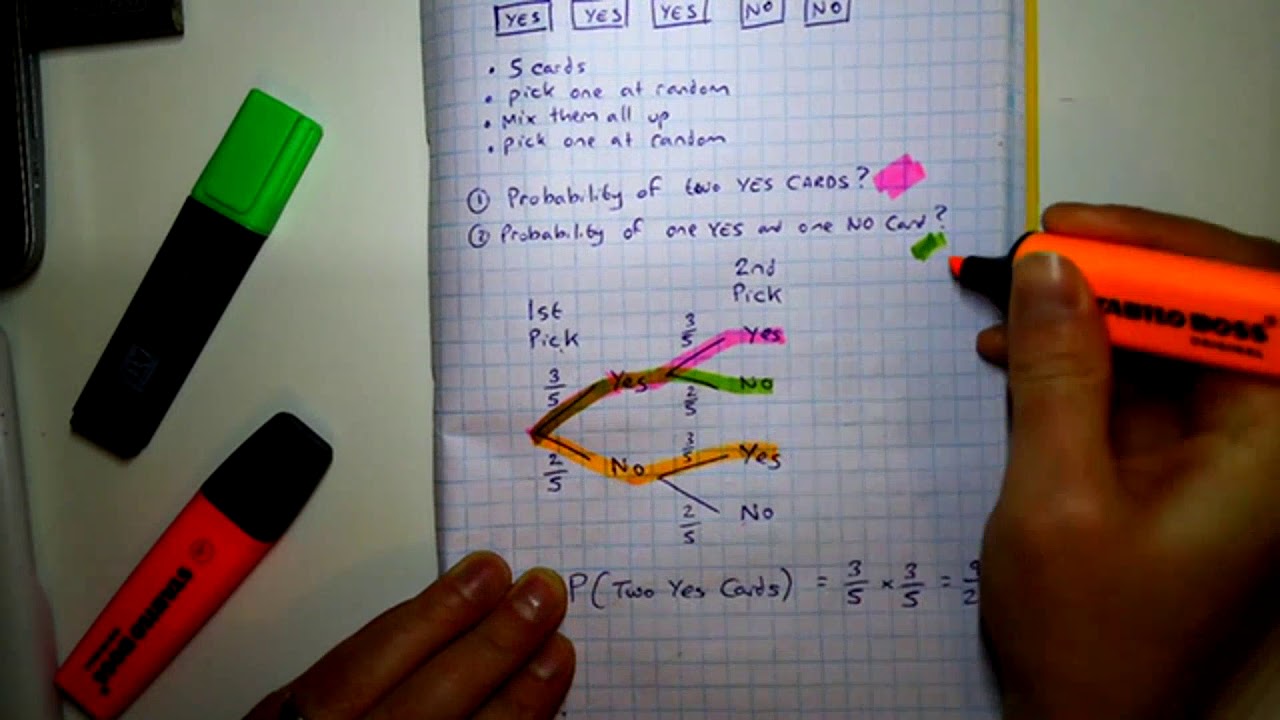 YES YES YES NO NO
• 5 cards
• pick one at random
• Mix them all up
• pick one at random
① Probability of two YES CARDS?
② Probability of one YES and one NO Card?
2nd
Pick
1st
Pick
3/5 Yes
3/5 Yes
2/5 No
2/5 No
3/5 Yes
2/5 No
P(Two Yes Cards) = 3/5 × 3/5 = 9/2
STABILO BOSS
ORIGINAL
STABILO BOSS